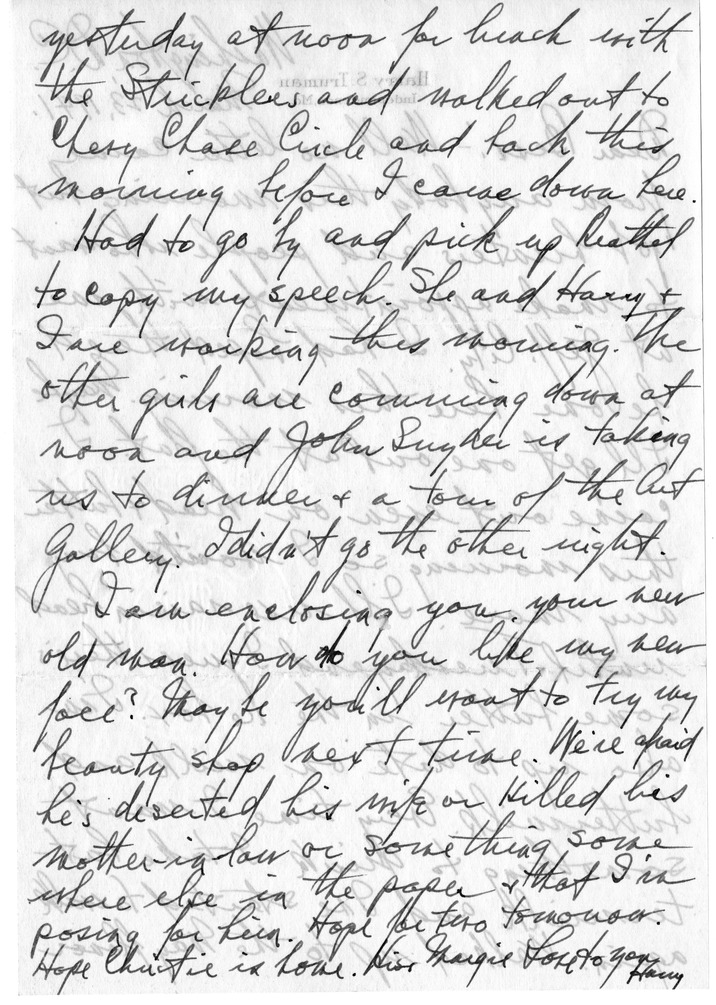 yesterday at noon for lunch with
the Stricklers and walked out to
Chevy Chase Circle and back this
morning before I came down here.
Had to go by and pick up Reathel
to copy my speech. She and Harry +
I are working this morning. The
other girls are comming down at
noon and John Snyder is taking
us to dinner + a tour of the Art
Gallery. I didn't go the other night.
I am enclosing you your new
old man. How do you like my new
face? Maybe you'll want to try my
beauty shop next time. We're afraid
he's diserted his wife or killed his
mother-in-law or something some
where else in the paper + that I'm
posing for him. Hope for two tomorrow.
Hope Christie is home. Kiss Margie Love to you
Harry
Harry S. Truman